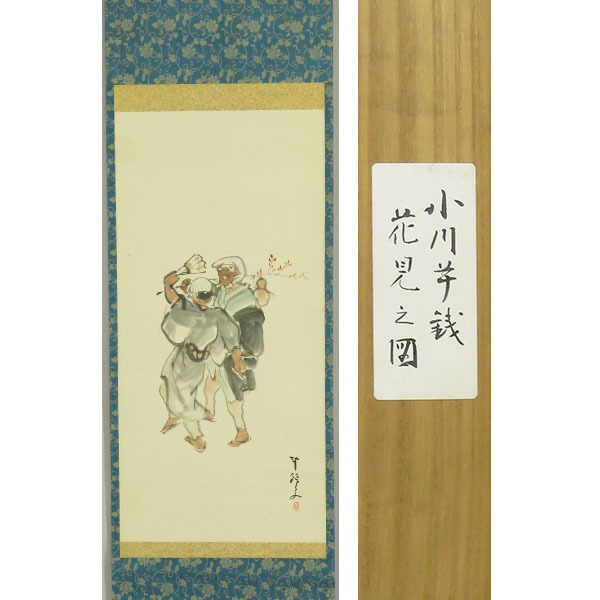 小川芋銭
花見之図